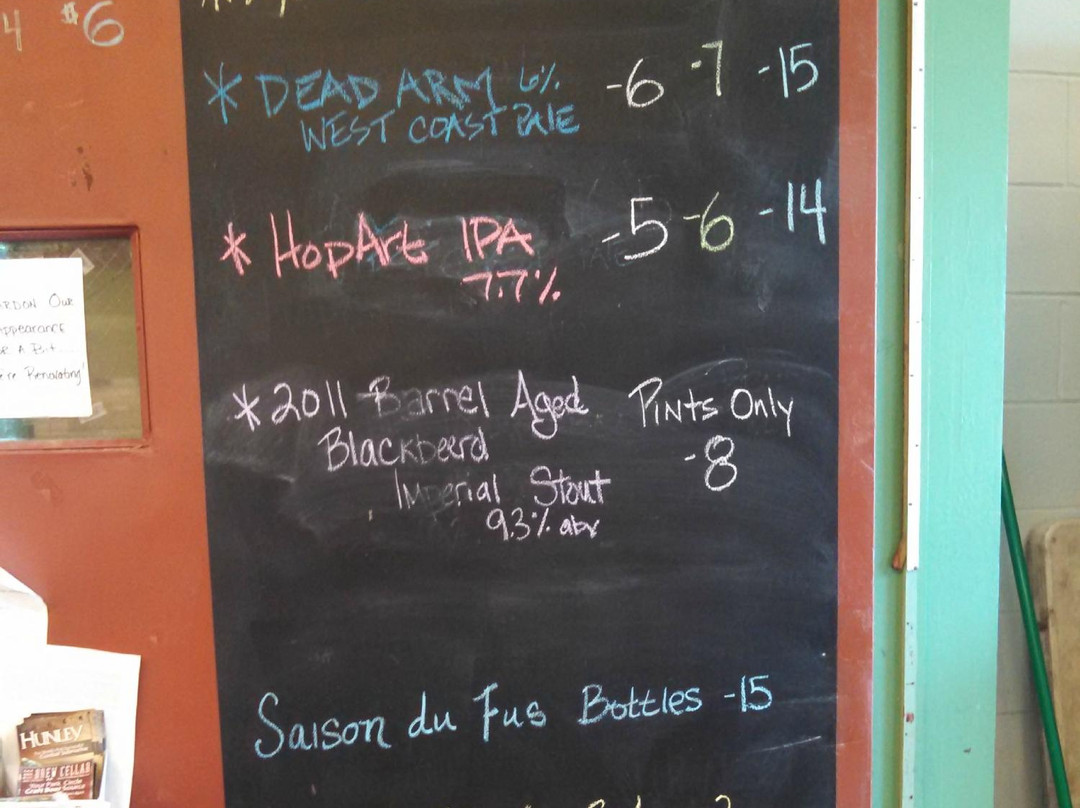 4 $6
* DEAD ARM 6% -6 -7 -15
WEST COAST PALE
* HopArt IPA -5 -6 -14
7.7%
ARDON Our
Appearance
A Bit....
e're Renovating!
* 2011 Barrel Aged Pints Only
Blackbeerd -8
Imperial Stout
9.3% abv
Saison du Fus Bottles -15
HUNLEY
BREW CELLAR
Your Park Circle
Craft Beer Source